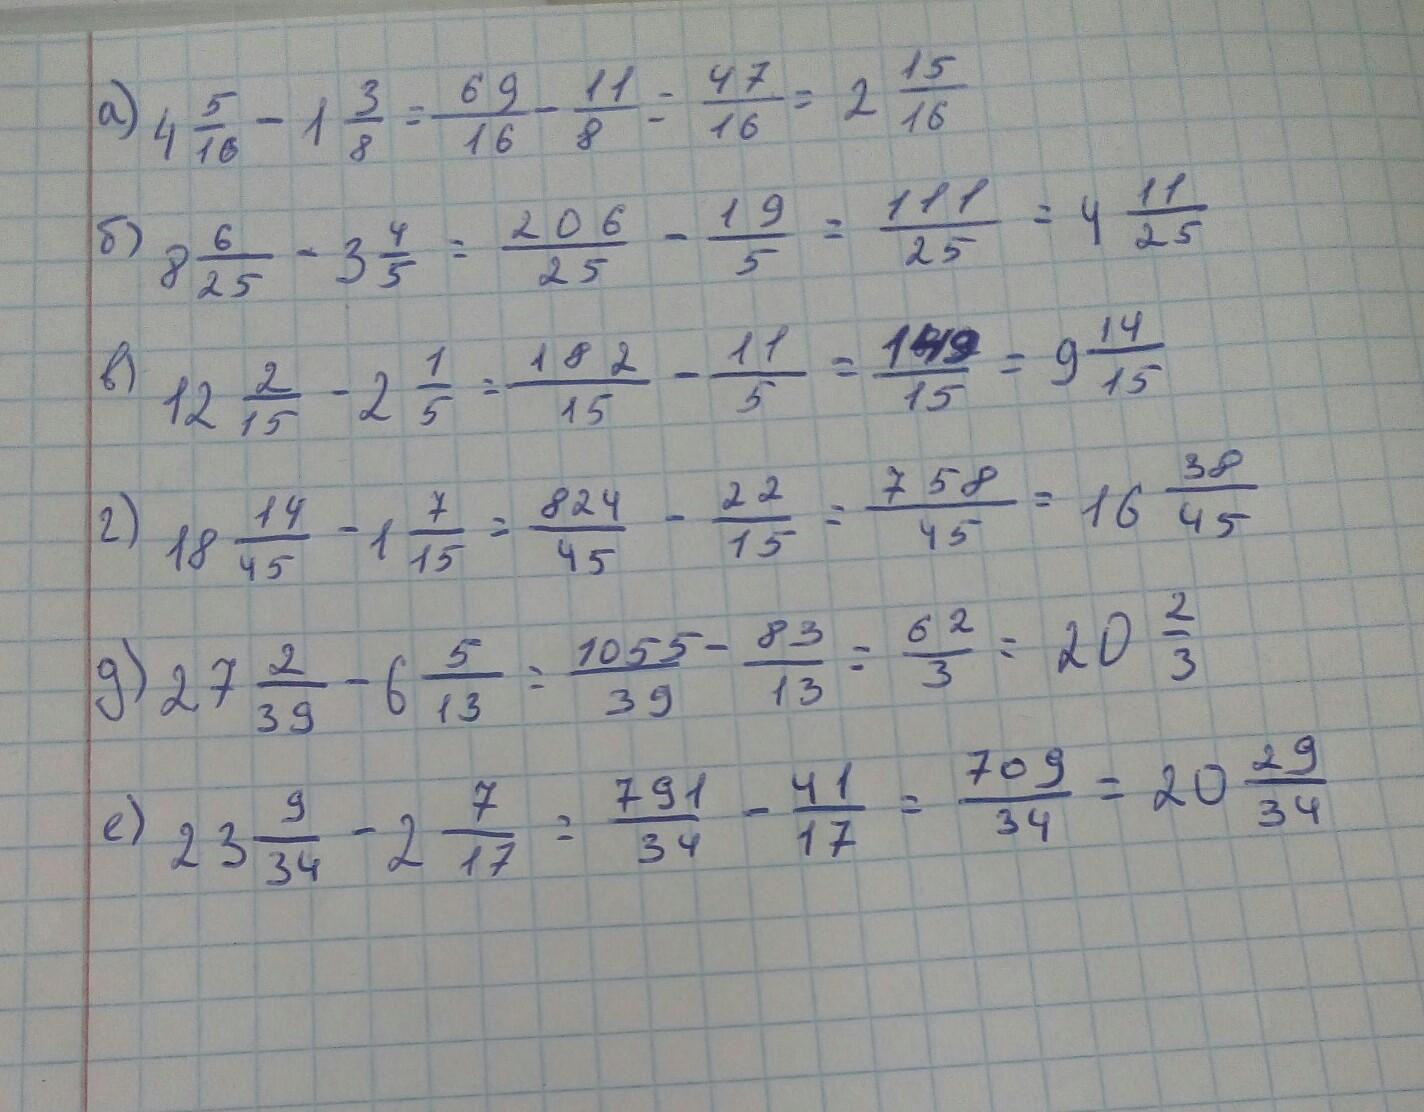 а) 4 5/16 - 1 3/8 = 69/16 - 11/8 = 47/16 = 2 15/16
б) 8 6/25 - 3 4/5 = 206/25 - 19/5 = 111/25 = 4 11/25
в) 12 2/15 - 2 1/5 = 182/15 - 11/5 = 149/15 = 9 14/15
г) 18 14/45 - 1 7/15 = 824/45 - 22/15 = 758/45 = 16 38/45
д) 27 2/39 - 6 5/13 = 1055/39 - 83/13 = 62/3 = 20 2/3
е) 23 9/34 - 2 7/17 = 791/34 - 41/17 = 709/34 = 20 29/34